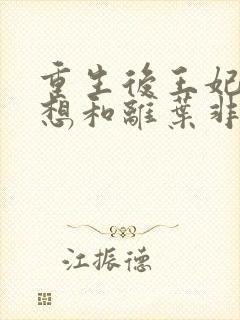 重生後王妃
想和離葉非
江振德